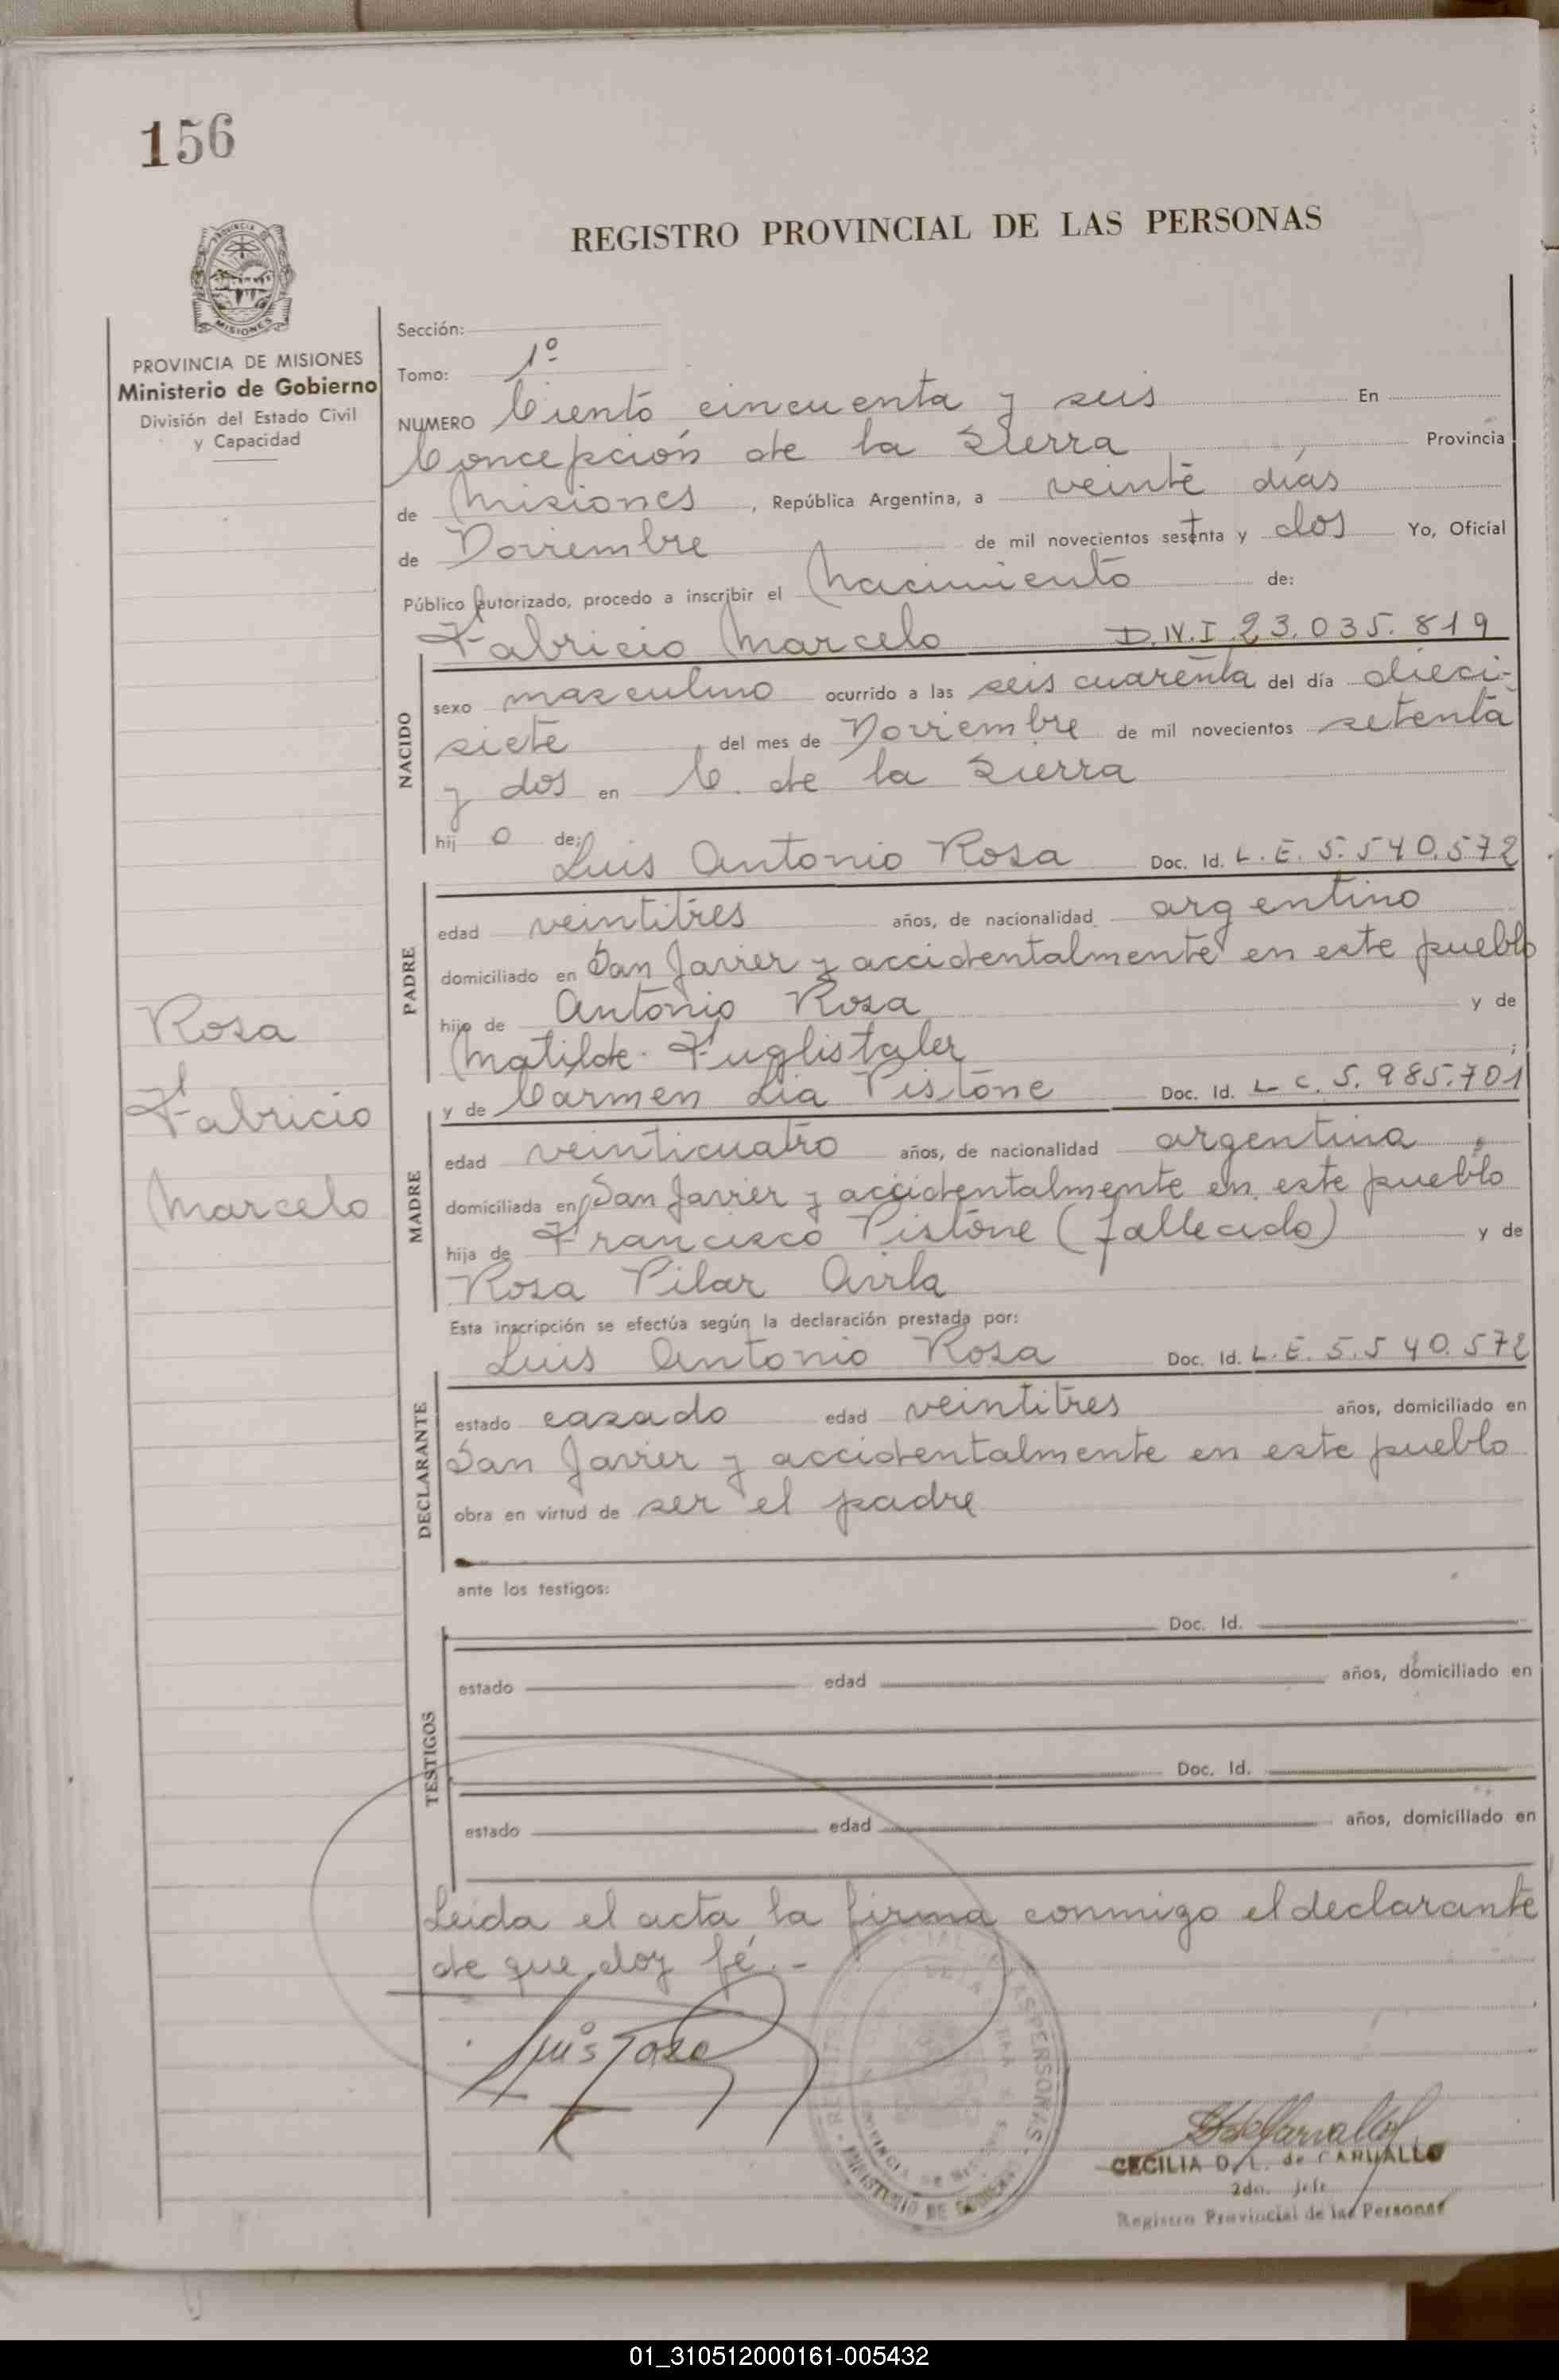 156
REGISTRO PROVINCIAL DE LAS PERSONAS
PROVINCIA DE MISIONES
Ministerio de Gobierno
División del Estado Civil
y Capacidad
Sección:
Tomo: 1º
NUMERO Ciento cincuenta y seis En
Concepción de la Sierra Provincia
de Misiones, República Argentina, a veinte días
de Noviembre de mil novecientos setenta y dos Yo, Oficial
Público autorizado, procedo a inscribir el Nacimiento de:
Fabricio Marcelo D.N.I 23.035.819
NACIDO
sexo masculino ocurrido a las seis cuarenta del día dieci-
siete del mes de Noviembre de mil novecientos setenta
y dos en C. de la Sierra
hij o de:
Luis Antonio Rosa Doc. Id. L.E. 5.540.572
PADRE
edad veintitres años, de nacionalidad argentino
domiciliado en San Javier y accidentalmente en este pueblo
hijo de Antonio Rosa y de
Matilde Fuglistaler;
y de Carmen Lia Pistone Doc. Id. L C. 5.985.701
Rosa
Fabricio
Marcelo
MADRE
edad veinticuatro años, de nacionalidad argentina
domiciliada en San Javier y accidentalmente en este pueblo
hija de Francisco Pistone (fallecido) y de
Rosa Pilar Avila
Esta inscripción se efectúa según la declaración prestada por:
Luis Antonio Rosa Doc. Id. L.E. 5.540.572
DECLARANTE
estado casado edad veintitres años, domiciliado en
San Javier y accidentalmente en este pueblo
obra en virtud de ser el padre
ante los testigos:
TESTIGOS
Doc. Id.
estado edad años, domiciliado en
Doc. Id.
estado edad años, domiciliado en
Leida el acta la firma conmigo el declarante
de que doy fé.-
Luis Rosa
CECILIA D. L. de CARVALLO
2do. Jefe
Registro Provincial de las Personas
01_310512000161-005432